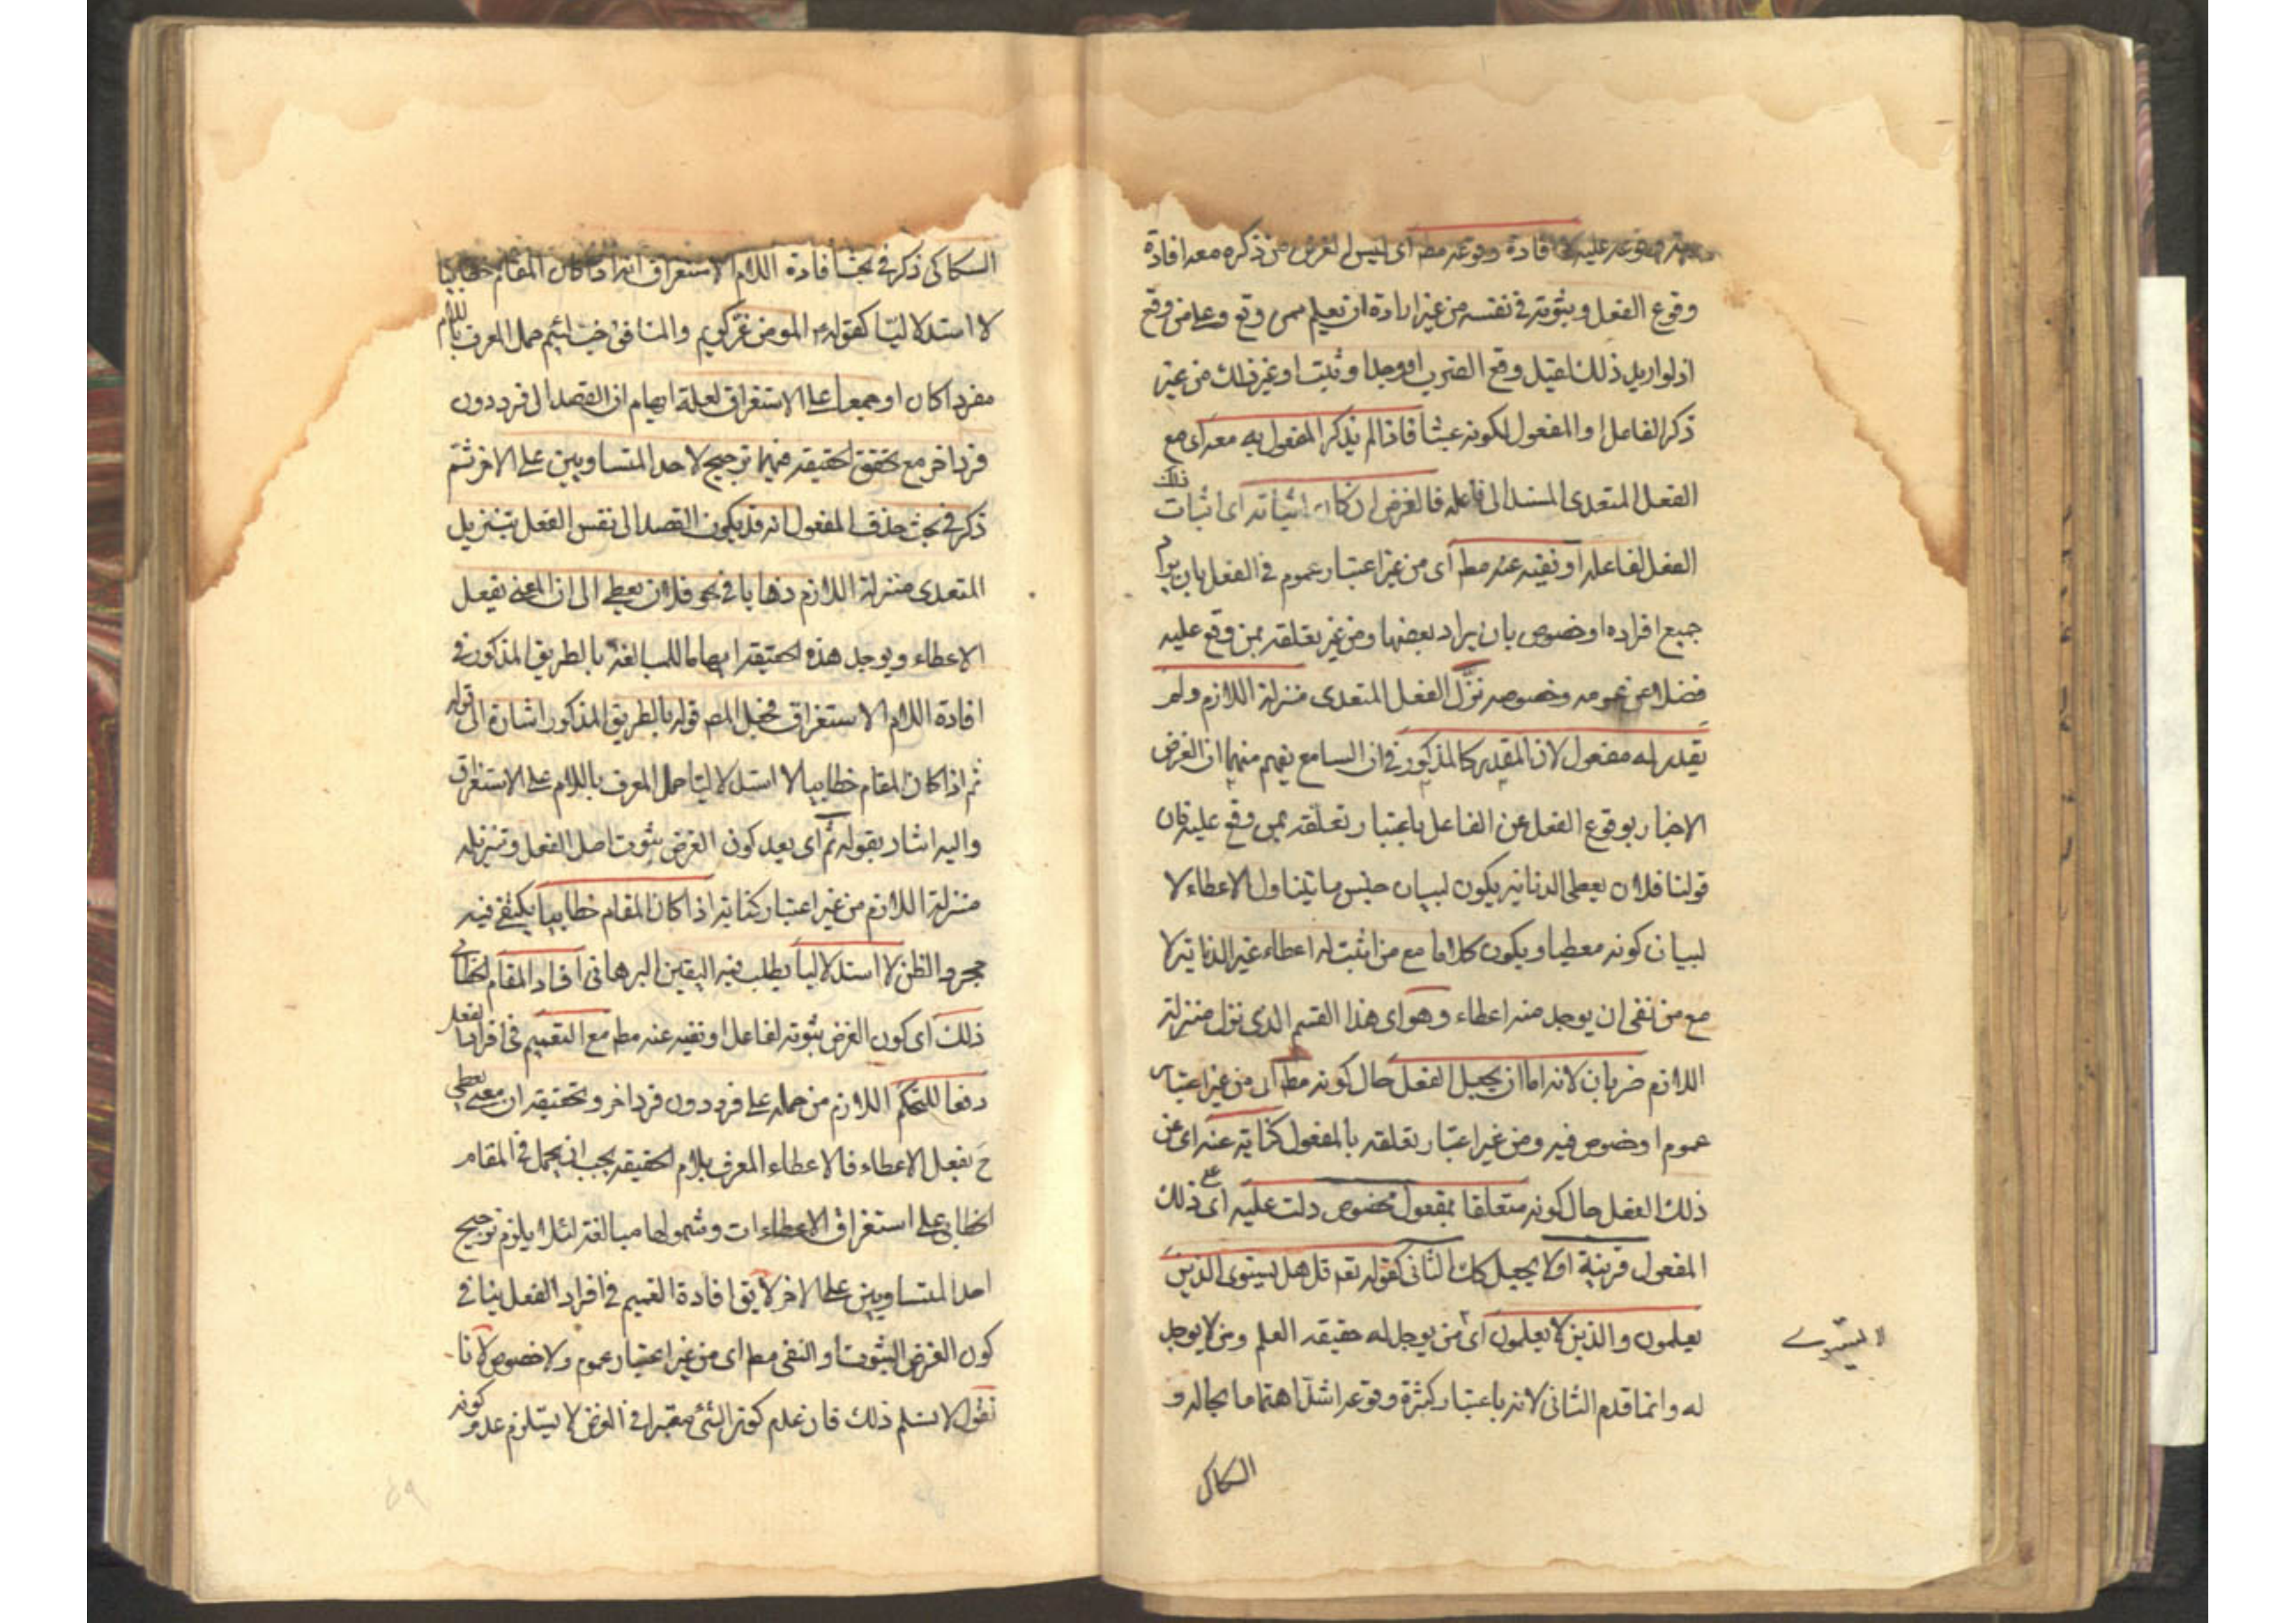 وقوعه عليه لا افادة وقوعه مط اى ليس الغرض من ذكره معه افادة
وقوع الفعل وثبوته فى نفسه من غير ارادة ان تعيلم ممن وقع وعلى من وقع
اذ لو اريد ذلك لقيل وقع الضرب او وجد او ثبت او غير ذلك من غير
ذكر الفاعل او المفعول لكونه عبثا فاذا لم يذكر المفعول به معه اى مع
الفعل المتعدى المسند الى فاعله فالغرض ان كان اثباته اى اثبات ذلك
الفعل لفاعله او نفيه عنه مط اى من غير اعتبار عموم فى الفعل بان يراد
جميع افراده او خصوص بان يراد بعضها ومن غير تعلقه بمن وقع عليه
فضلا عن عمومه وخصوصه نزّل الفعل المتعدى منزلة اللازم ولم
يقدر له مفعول لان المقدر كالمذكور فى ان السامع يفهم منهما ان الغرض
الاخبار بوقوع الفعل عن الفاعل باعتبار تعلقه بمن وقع عليه فان
قولنا فلان يعطى الدنانير يكون لبيان جنس ما يتناول الاعطاء لا
لبيان كونه معطيا ويكون كلاما مع من اثبت له اعطاء غير الدنانير لا
مع من نفى ان يوجد منه اعطاء وهو اى هذا القسم الذى نزل منزلة
اللازم ضربان لانه اما ان يجعل الفعل حال كونه مط اى من غير اعتبار
عموم او خصوص فيه ومن غير اعتبار تعلقه بالمفعول كناية عنه اى عن
ذلك الفعل حال كونه متعلقا بمفعول مخصوص دلت عليه اى على ذلك
المفعول قرينة او لا يجعل كك الثانى كقوله تعم قل هل يستوى الذين
يعلمون والذين لا يعلمون اى من يوجد له حقيقه العلم ومن لا يوجد
له وانما قدم الثانى لانه باعتبار كثرة وقوعه اشد اهتماما بحاله و
السكاكى
السكاكى ذكر فى بحث افادة اللام الاستغراق انه اذا كان المقام خطابيا
لا استدلاليّا كقوله المومن غرّ كريم والمنافق خبّ لئيم حمل المعرف باللام
مفردا كان او جمعا على الاستغراق لعلة ايهام ان القصد الى فرد دون
فرد اخر مع تحقق الحقيقه فيهما ترجيح لاحد المتساويين على الاخر ثم
ذكر فى بحث حذف المفعول انه قد يكون القصد الى نفس الفعل بتنزيل
المتعدى منزلة اللازم ذهابا فى نحو فلان يعطى الى ان المعنى يفعل
الاعطاء ويوجد هذه الحقيقه ايهاما للمبالغة بالطريق المذكور فى
افادة اللام الاستغراق فجعل المص قوله بالطريق المذكور اشارة الى قوله
ثم اذا كان المقام خطابيا لا استدلاليّا حمل المعرف باللام على الاستغراق
واليه اشار بقوله ثم اى بعد كون الغرض ثبوت اصل الفعل وتنزيله
منزلة اللازم من غير اعتبار كناية اذا كان المقام خطابيا يكتفى فيه
بمجرد الظن لا استدلاليا يطلب فيه اليقين البرهانى افاد المقام الخطابى
ذلك اى كون الغرض ثبوته لفاعل او نفيه عنه مط مع التعميم فى افراد الفعل
دفعا للتحكم اللازم من حمله على فرد دون فرد اخر وتحقيقه ان معنى يعطى
ح يفعل الاعطاء فالاعطاء المعرف بلام الحقيقه يجب ان يحمل فى المقام
الخطابى على استغراق الاعطاءات وشمولها مبالغة لئلا يلزم ترجيح
احد المتساويين على الاخر لا يق افادة التعميم فى افراد الفعل ينافى
كون الغرض الثبوت او النفى مط اى من غير اعتبار عموم ولا خصوص لانا
نقول لا نسلم ذلك فان عدم كون الشئ معتبرا فى الغرض لا يستلزم عدم كونه